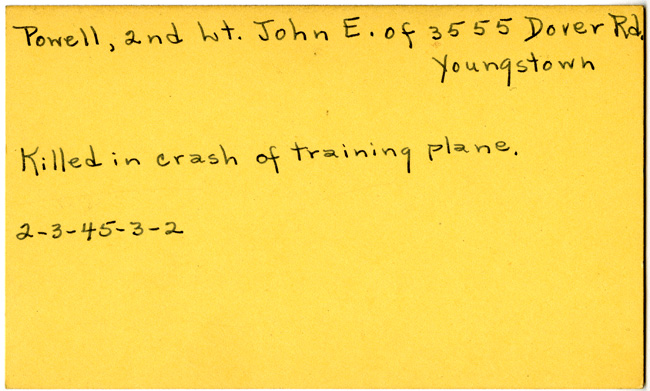 Powell, 2nd Lt. John E. of 3555 Dover Rd.
Youngstown
Killed in crash of training plane.
2-3-45-3-2